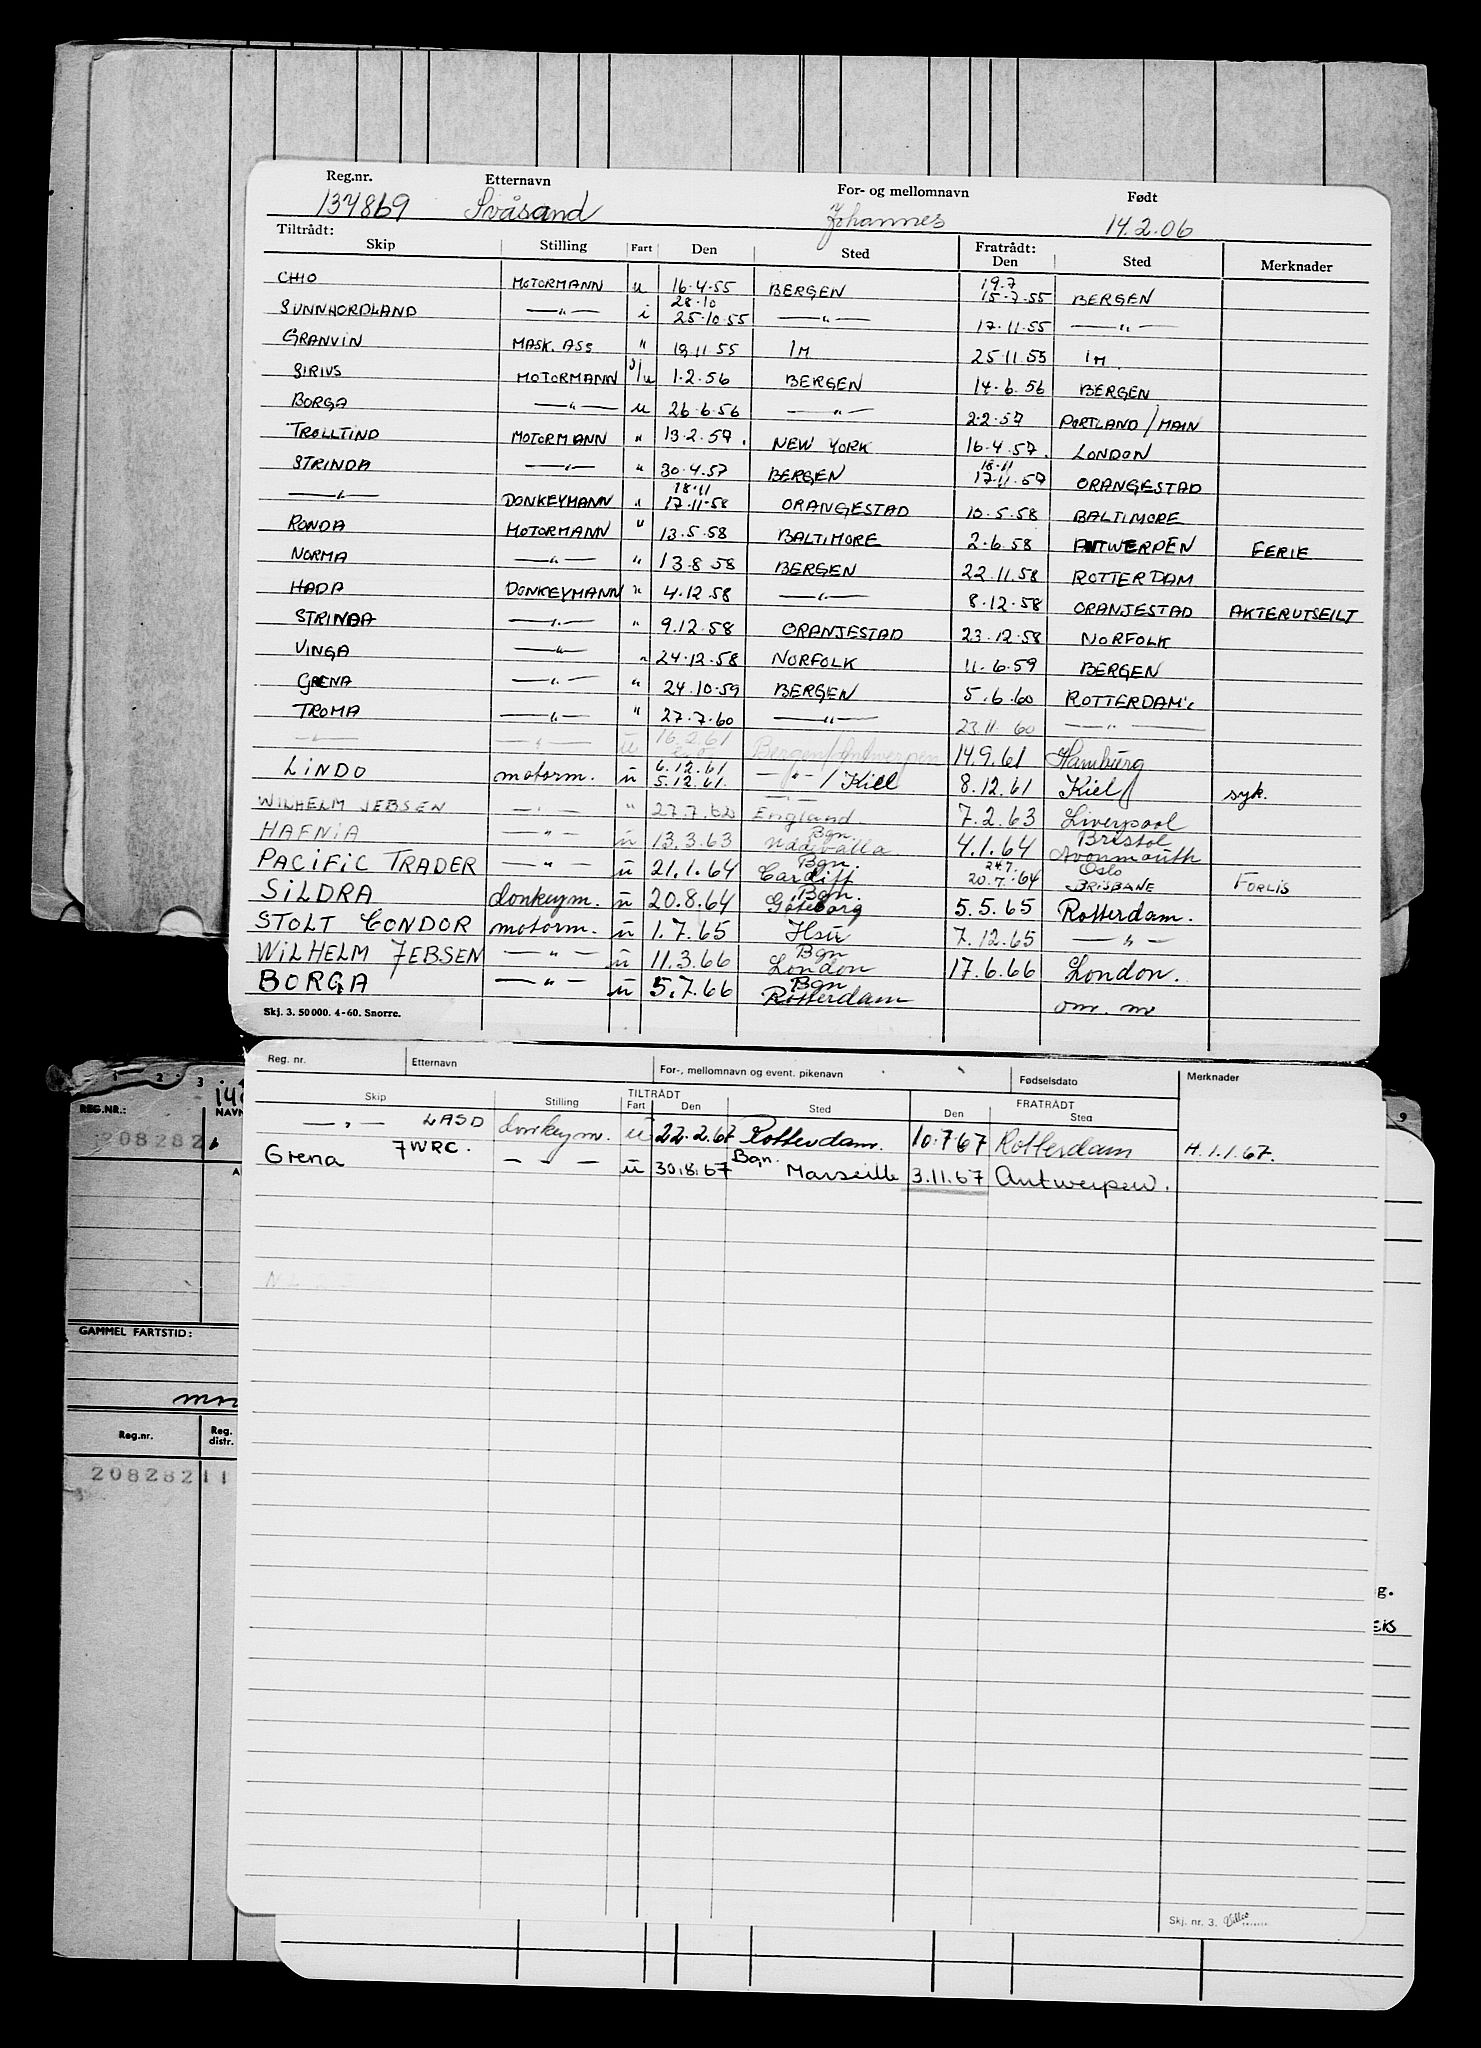 Reg.nr. Etternavn For- og mellomnavn Født
137869 Svåsand Johannes 14.2.06
Tiltrådt: Fratrådt:
Skip Stilling Fart Den Sted Den Sted Merknader
CHIO MOTORMANN u 16.4.55 BERGEN 19.7 15.7.55 BERGEN
SUNNHORDLAND —"— i 28.10 25.10.55 —"— 17.11.55 —"—
GRANVIN MASK. ASS " 19.11.55 IM 25.11.55 IM
SIRIUS MOTORMANN /u 1.2.56 BERGEN 14.6.56 BERGEN
BORGA —"— u 26.6.56 —"— 2.2.57 PORTLAND/MAIN
TROLLTIND MOTORMANN " 13.2.57. NEW YORK 16.4.57. LONDON
STRINDA —"— " 30.4.57 BERGEN 18.11 17.11.57 ORANGESTAD
—"— DONKEYMANN " 18.11 17.11.58 ORANGESTAD 10.5.58 BALTIMORE
RONDA MOTORMANN " 13.5.58 BALTIMORE 2.6.58 ANTWERPEN FERIE
NORMA —"— " 13.8.58 BERGEN 22.11.58 ROTTERDAM
HADA DONKEYMANN " 4.12.58 —"— 8.12.58 ORANJESTAD AKTERUTSEILT
STRINDA —"— " 9.12.58 ORANJESTAD 23.12.58 NORFOLK
VINGA —"— " 24.12.58 NORFOLK 11.6.59 BERGEN
GRENA —"— " 24.10.59 BERGEN 5.6.60 ROTTERDAM
TROMA —"— " 27.7.60 —"— 23.11.60 —"—
—"— —"— u 16.2.61 Bergen/Antwerpen 14.9.61 Hamburg
LINDO motorm. u 6.12.61 5.12.61. —"— / Kiel 8.12.61 Kiel syk.
WILHELM JEBSEN —"— " 27.7.62 England 7.2.63 Liverpool
HAFNIA —"— u 13.3.63 Bgn. Uddevalla 4.1.64 Bristol Avonmouth
PACIFIC TRADER —"— u 21.1.64 Bgn. Cardiff 24.7. 20.7.64 Oslo BRISBANE FORLIS
SILDRA donkeym. u 20.8.64 Bgn. Göteborg 5.5.65 Rotterdam.
STOLT CONDOR motorm. u 1.7.65 Hsu 7.12.65 —"—
WILHELM JEBSEN —"— u 11.3.66 Bgn London 17.6.66 London.
BORGA —"— u 5.7.66 Bgn Rotterdam om. m
Skj. 3. 50 000. 4-60. Snorre.
Reg. nr. Etternavn For-, mellomnavn og event. pikenavn Fødselsdato Merknader
TILTRÅDT FRATRÅDT
Skip Stilling Fart Den Sted Den Sted
—"— LASD donkeym. u 22.2.67 Rotterdam. 10.7.67 Rotterdam H. 1.1.67.
Grena 7WRC. — " — u 30.8.67 Bgn. Marseille 3.11.67 Antwerpen.
Skj. nr. 3.
1 2 3
REG.NR.: NAVN
208282
GAMMEL FARTSTID:
Reg.nr. Reg. distr.
208282 11
9
g.